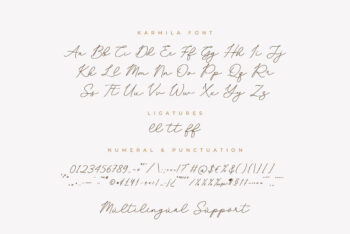 KARMILA FONT
Aa Bb Cc Dd Ee Ff Gg Hh Ii Jj
Kk Ll Mm Nn Oo Pp Qq Rr
Ss Tt Uu Vv Ww Xx Yy Zz
LIGATURES
ll tt ff
NUMERAL & PUNCTUATION
0123456789
Multilingual Support